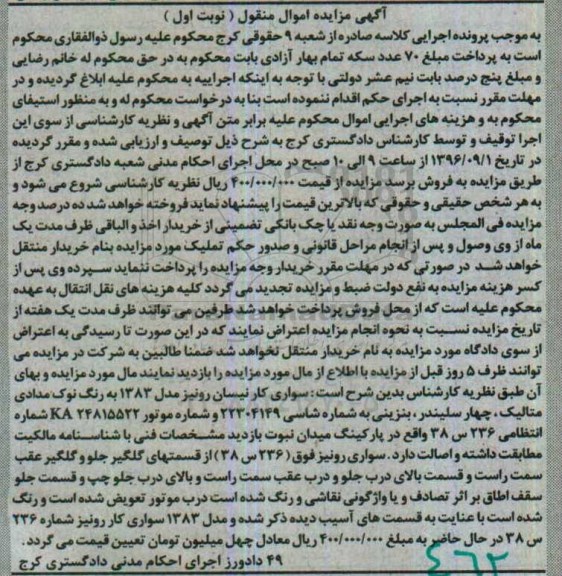 آگهی مزایده اموال منقول ( نوبت اول )
به موجب پرونده اجرایی کلاسه صادره از شعبه ۹ حقوقی کرج محکوم علیه رسول ذوالفقاری محکوم
است به پرداخت مبلغ ۷۰ عدد سکه تمام بهار آزادی بابت محکوم به در حق محکوم له خانم رضایی
و مبلغ پنج درصد بابت نیم عشر دولتی با توجه به اینکه اجراییه به محکوم علیه ابلاغ گردیده و در
مهلت مقرر نسبت به اجرای حکم اقدام ننموده است بنا به درخواست محکوم له و به منظور استیفای
محکوم به و هزینه های اجرایی اموال محکوم علیه برابر متن آگهی و نظریه کارشناسی از سوی این
اجرا توقیف و توسط کارشناس دادگستری کرج به شرح ذیل توصیف و ارزیابی شده و مقرر گردیده
در تاریخ ۱۳۹۶/۰۹/۱ از ساعت ۹ الی ۱۰ صبح در محل اجرای احکام مدنی شعبه دادگستری کرج از
طریق مزایده به فروش برسد مزایده از قیمت ۴۰۰/۰۰۰/۰۰۰ ریال نظریه کارشناسی شروع می شود و
به هر شخص حقیقی و حقوقی که بالاترین قیمت را پیشنهاد نماید فروخته خواهد شد ده درصد وجه
مزایده فی المجلس به صورت وجه نقد یا چک بانکی تضمینی از خریدار اخذ و الباقی ظرف مدت یک
ماه از وی وصول و پس از انجام مراحل قانونی و صدور حکم تملیک مورد مزایده بنام خریدار منتقل
خواهد شد در صورتی که در مهلت مقرر خریدار وجه مزایده را پرداخت ننماید سپرده وی پس از
کسر هزینه مزایده به نفع دولت ضبط و مزایده تجدید می گردد کلیه هزینه های نقل انتقال به عهده
محکوم علیه است که از محل فروش پرداخت خواهد شد طرفین می توانند ظرف مدت یک هفته از
تاریخ مزایده نسبت به نحوه انجام مزایده اعتراض نمایند که در این صورت تا رسیدگی به اعتراض
از سوی دادگاه مورد مزایده به نام خریدار منتقل نخواهد شد ضمنا طالبین به شرکت در مزایده می
توانند ظرف ۵ روز قبل از مزایده با اطلاع از مال مورد مزایده را بازدید نمایند مال مورد مزایده و بهای
آن طبق نظریه کارشناس بدین شرح است: سواری کار نیسان رونیز مدل ۱۳۸۳ به رنگ نوک مدادی
متالیک ، چهار سلیندر ، بنزینی به شماره شاسی ۲۲۳۰۴۱۴۹ و شماره موتور KA ۲۴۸۱۵۵۲۲ شماره
انتظامی ۲۳۶ س ۳۸ واقع در پارکینگ میدان نبوت بازدید مشخصات فنی با شناسنامه مالکیت
مطابقت داشته و اصالت دارد . سواری رونیز فوق ( ۲۳۶ س ۳۸ ) از قسمتهای گلگیر جلو و گلگیر عقب
سمت راست و قسمت بالای درب جلو و درب عقب سمت راست و بالای درب جلو چپ و قسمت جلو
سقف اطاق بر اثر تصادف و یا واژگونی نقاشی و رنگ شده است درب موتور تعویض شده است و رنگ
شده است با عنایت به قسمت های آسیب دیده ذکر شده و مدل ۱۳۸۳ سواری کار رونیز شماره ۲۳۶
س ۳۸ در حال حاضر به مبلغ ۴۰۰/۰۰۰/۰۰۰ ریال معادل چهل میلیون تومان تعیین قیمت می گردد.
۴۹ دادورز اجرای احکام مدنی دادگستری کرج
۴۶۲